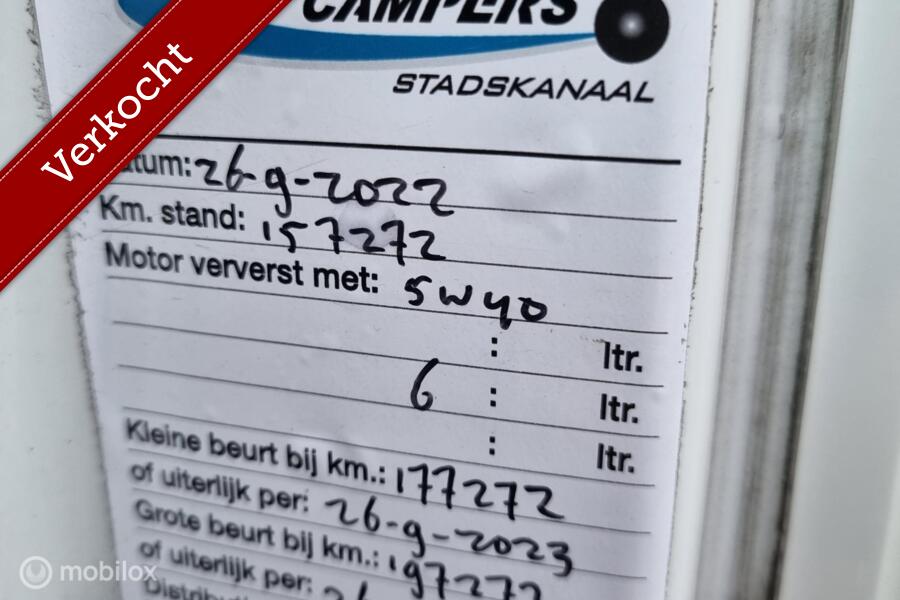 CAMPERS
STADSKANAAL
Verkocht
Datum: 26-9-2022
Km. stand: 157272
Motor ververst met: 5W40
: ltr.
6 : ltr.
: ltr.
Kleine beurt bij km.: 177272
of uiterlijk per: 26-9-2023
Grote beurt bij km.: 197272
of uiterlijk per:
mobilox